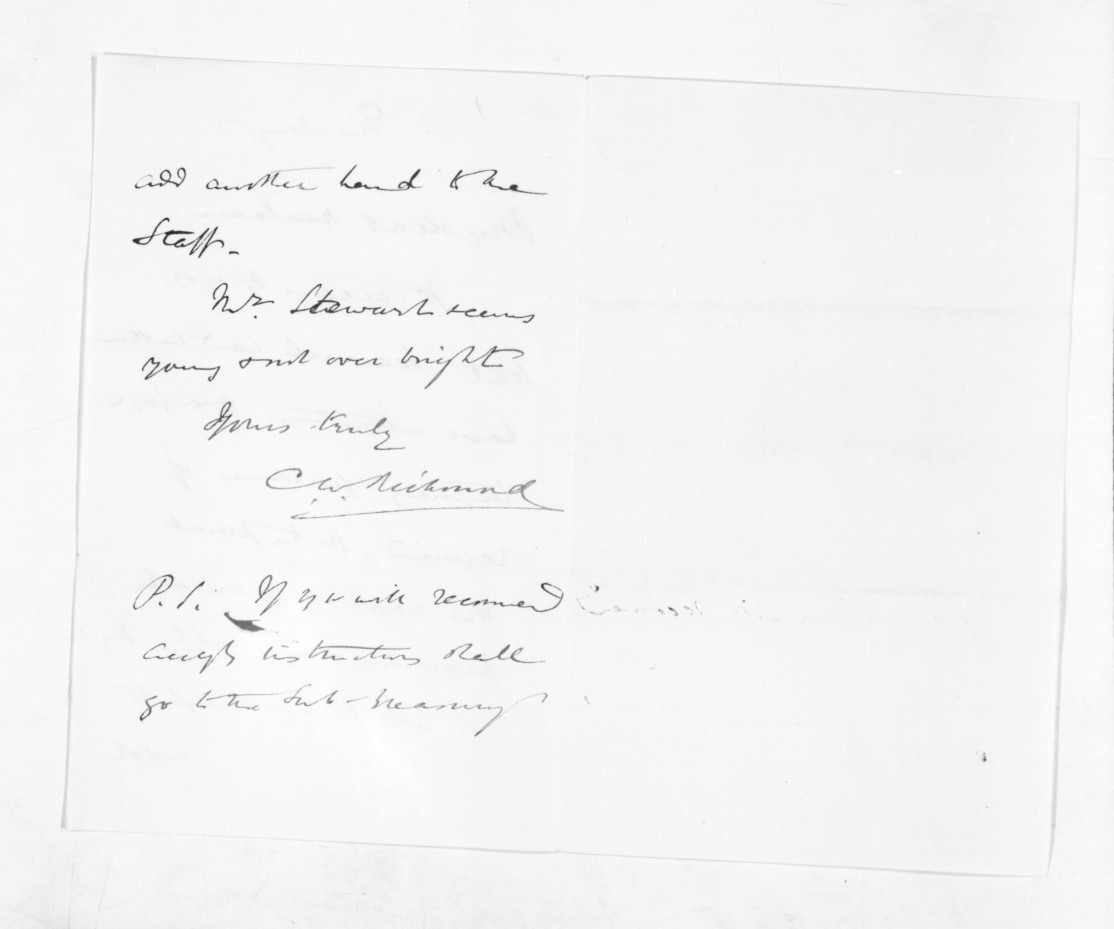 add another hand to the
Staff.
Mr. Stewart seems
young & not over bright
Yours truly
C W. Richmond
P.S. If you will recommend
accgly instructions shall
go to the Sub-Treasury